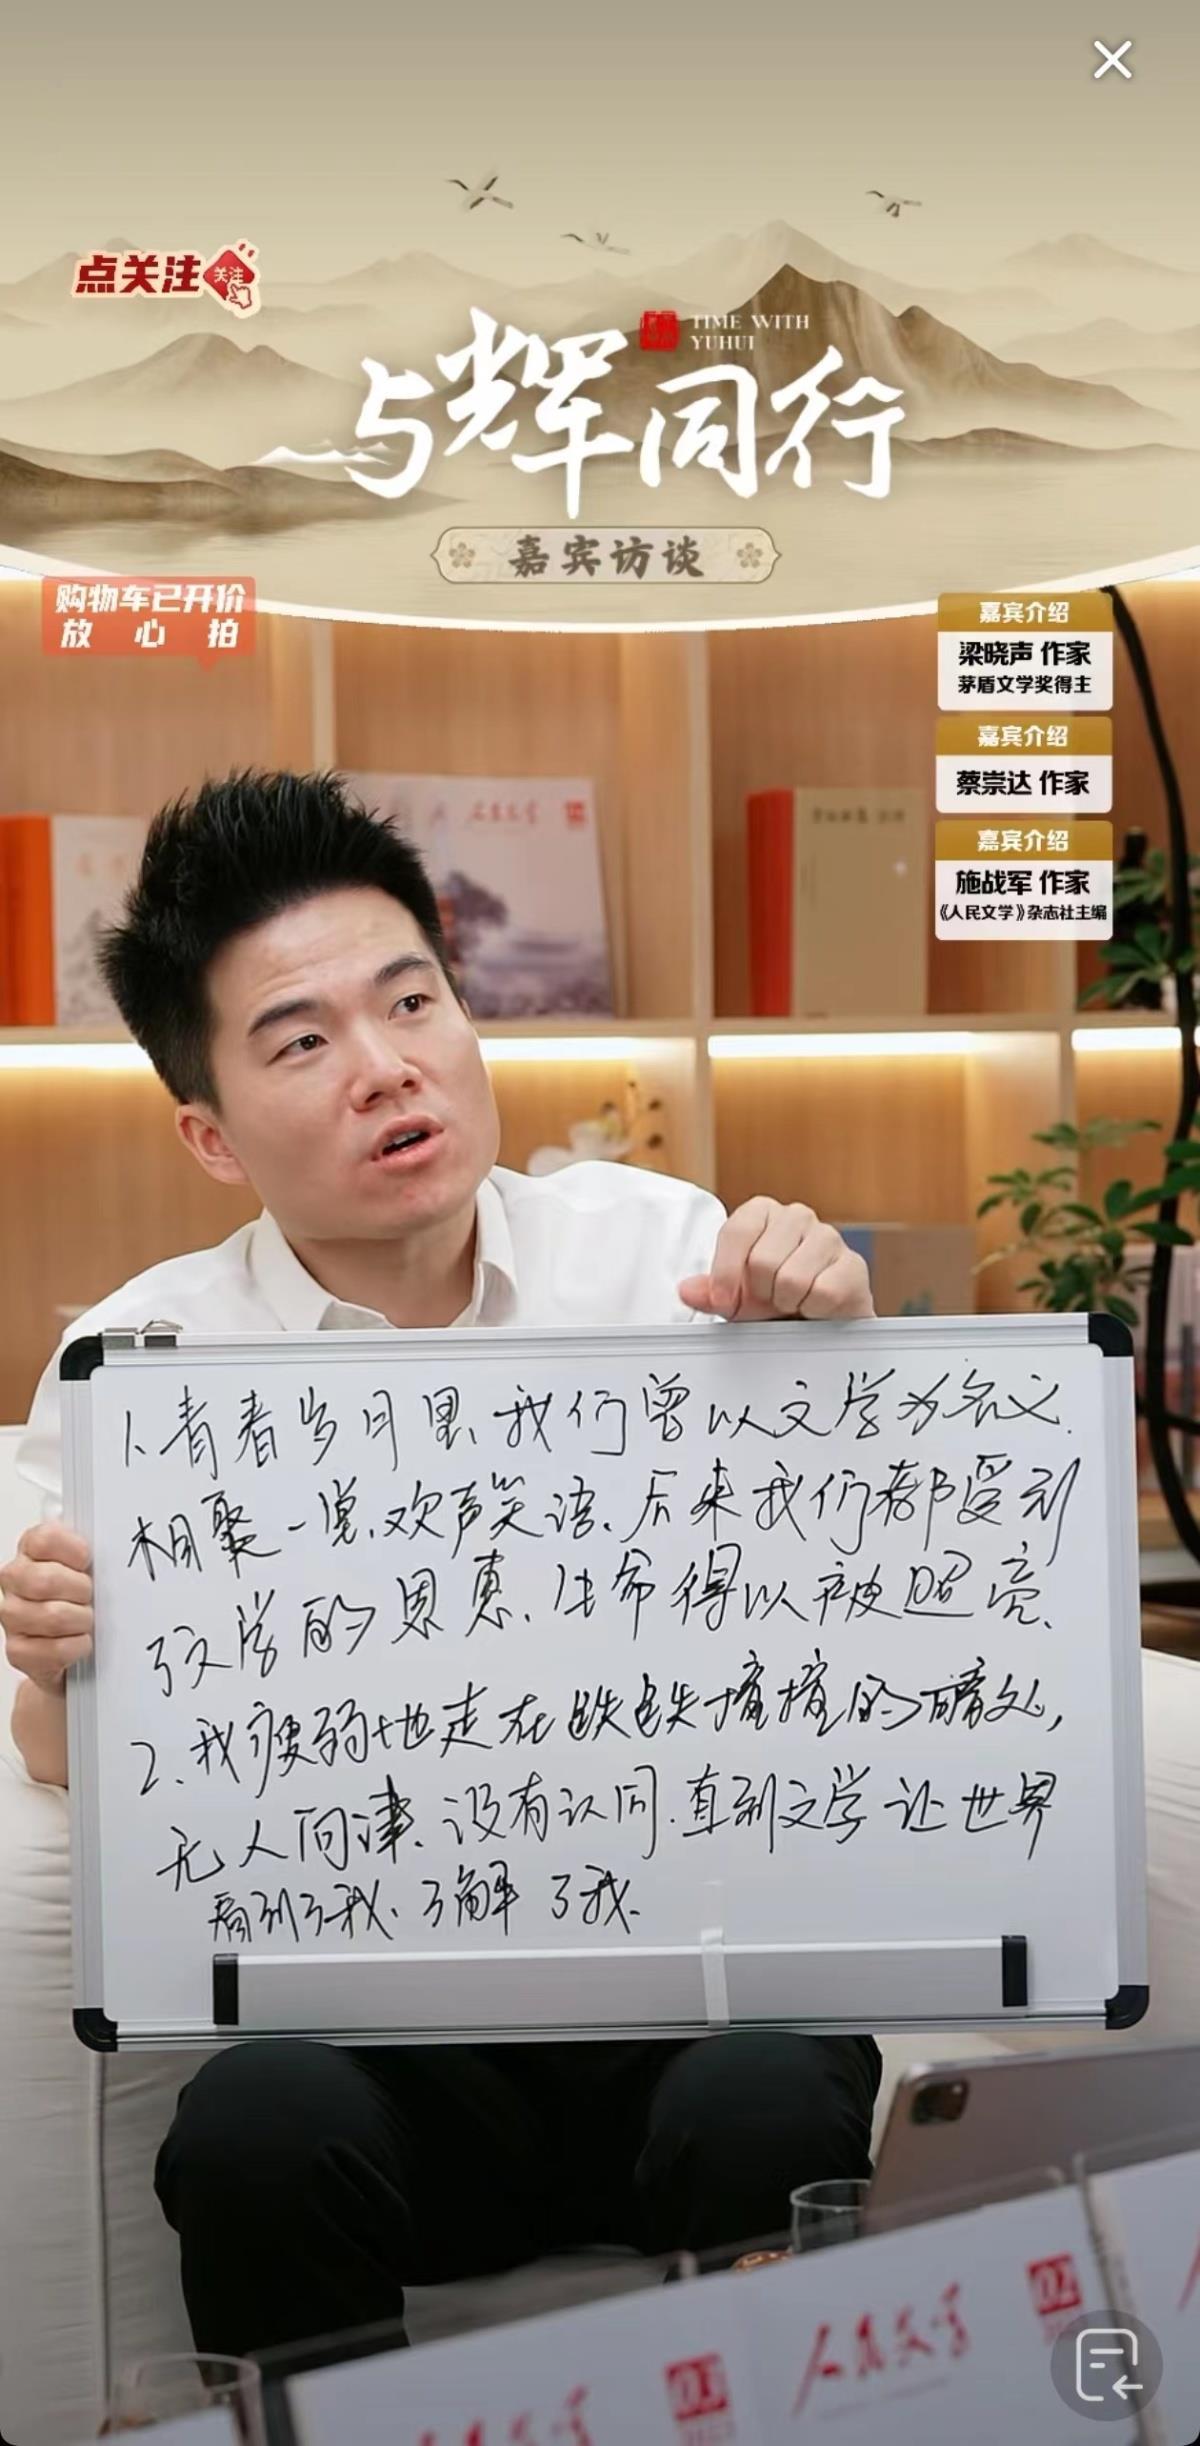 点关注
关注
TIME WITH
YUHUI
与辉同行
嘉宾访谈
购物车已开价
放心拍
嘉宾介绍
梁晓声 作家
茅盾文学奖得主
嘉宾介绍
蔡崇达 作家
嘉宾介绍
施战军 作家
《人民文学》杂志社主编
人民文学
1.青春岁月里、我们曾以文学为名义.
相聚一堂、欢声笑语、后来我们都受到
了文学的恩惠、生命得以被照亮、
2、我瘦弱地走在跌跌撞撞的暗处,
无人问津、没有认同.直到文学让世界
看到了我、了解了我.
人民文学
人民文学